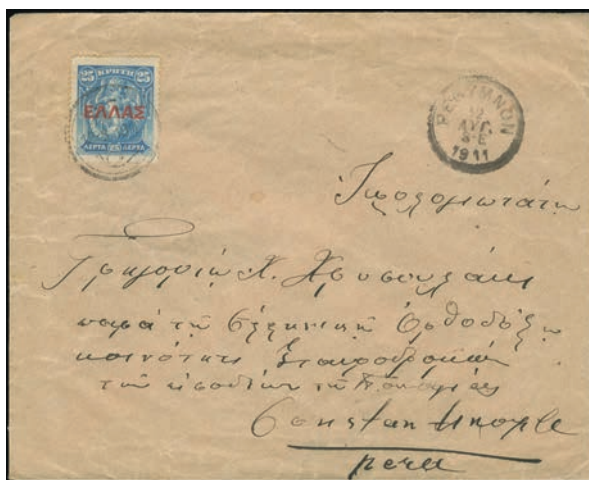 25 ΚΡΗΤΗ 25
ΕΛΛΑΣ
ΛΕΠΤΑ 25 ΛΕΠΤΑ
ΡΕΘΥΜΝΟΝ
ΑΥΓ
1911
Ἱερολογιωτάτῳ
Γρηγορίῳ Χ. Χρυσουλάκι
παρὰ τῇ Ἑλληνικῇ Ὀρθοδόξῳ
κοινότητι Σταυροδρομίου
τῶν εἰσοδίων τῆς Παναγίας
Constantinople
pera